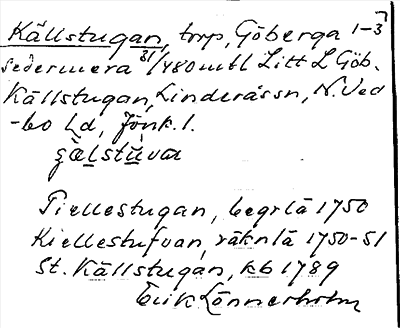 Källstugan, torp, Göberga 1-3
sedermera 31/480 mtl Litt L Göb.
Källstugan, Linderås sn, N. Ved
-bo hd, Jönk. l.
çä̀lstu̲va
Tiellestugan, begrlä 1750
Kiellestufvan, räknlä 1750-51
St. Källstugan, kb 1789
Erik Lönnerholm